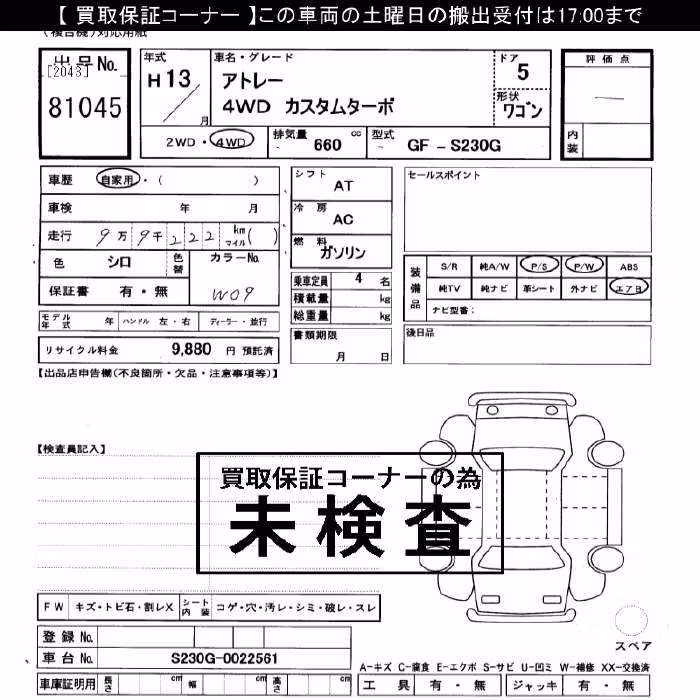 【 買取保証コーナー 】この車両の土曜日の搬出受付は17:00まで
(複合機)対応用紙
出品No.
[2043]
81045
年式
H13
月
車名・グレード
アトレー
4WD カスタムターボ
ドア
5
形状
ワゴン
評価点
—
内装
2WD・4WD
排気量 660 cc
型式 GF－S230G
車歴 自家用・( )
車検 年 月
走行 9万9千222 km マイル( )
色 シロ 色替 カラーNo.
保証書 有・無 W09
シフト AT
冷房 AC
燃料 ガソリン
乗車定員 4 名
積載量 kg
総重量 kg
書類期限
月 日
セールスポイント
装備品
S/R 純A/W P/S P/W ABS
純TV 純ナビ 革シート 外ナビ エアB
ナビ型番：
後日品
モデル年式 年 ハンドル 左・右 ディーラー・並行
リサイクル料金 9,880 円 預託済
【出品店申告欄(不良箇所・欠品・注意事項等)】
【検査員記入】
買取保証コーナーの為
未検査
FW キズ・トビ石・割レX シート内装 コゲ・穴・汚レ・シミ・破レ・スレ
登録No.
車台No. S230G-0022561
車庫証明用 長さ cm 幅 cm 高さ cm
スペア
A-キズ C-腐食 E-エクボ S-サビ U-凹ミ W-補修 XX-交換済
工具 有・無 ジャッキ 有・無